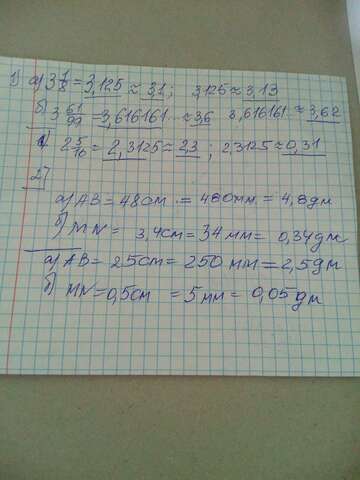 1) а) 3 1/8 = 3,125 ≈ 3,1 ; 3,125 ≈ 3,13
б) 3 61/99 = 3,616161... ≈ 3,6 3,616161... ≈ 3,62
2 5/16 = 2,3125 ≈ 2,3 ; 2,3125 ≈ 0,31
2)
а) AB = 48 см = 480 мм = 4,8 дм
б) MN = 3,4 см = 34 мм = 0,34 дм
а) AB = 25 см = 250 мм = 2,5 дм
б) MN = 0,5 см = 5 мм = 0,05 дм